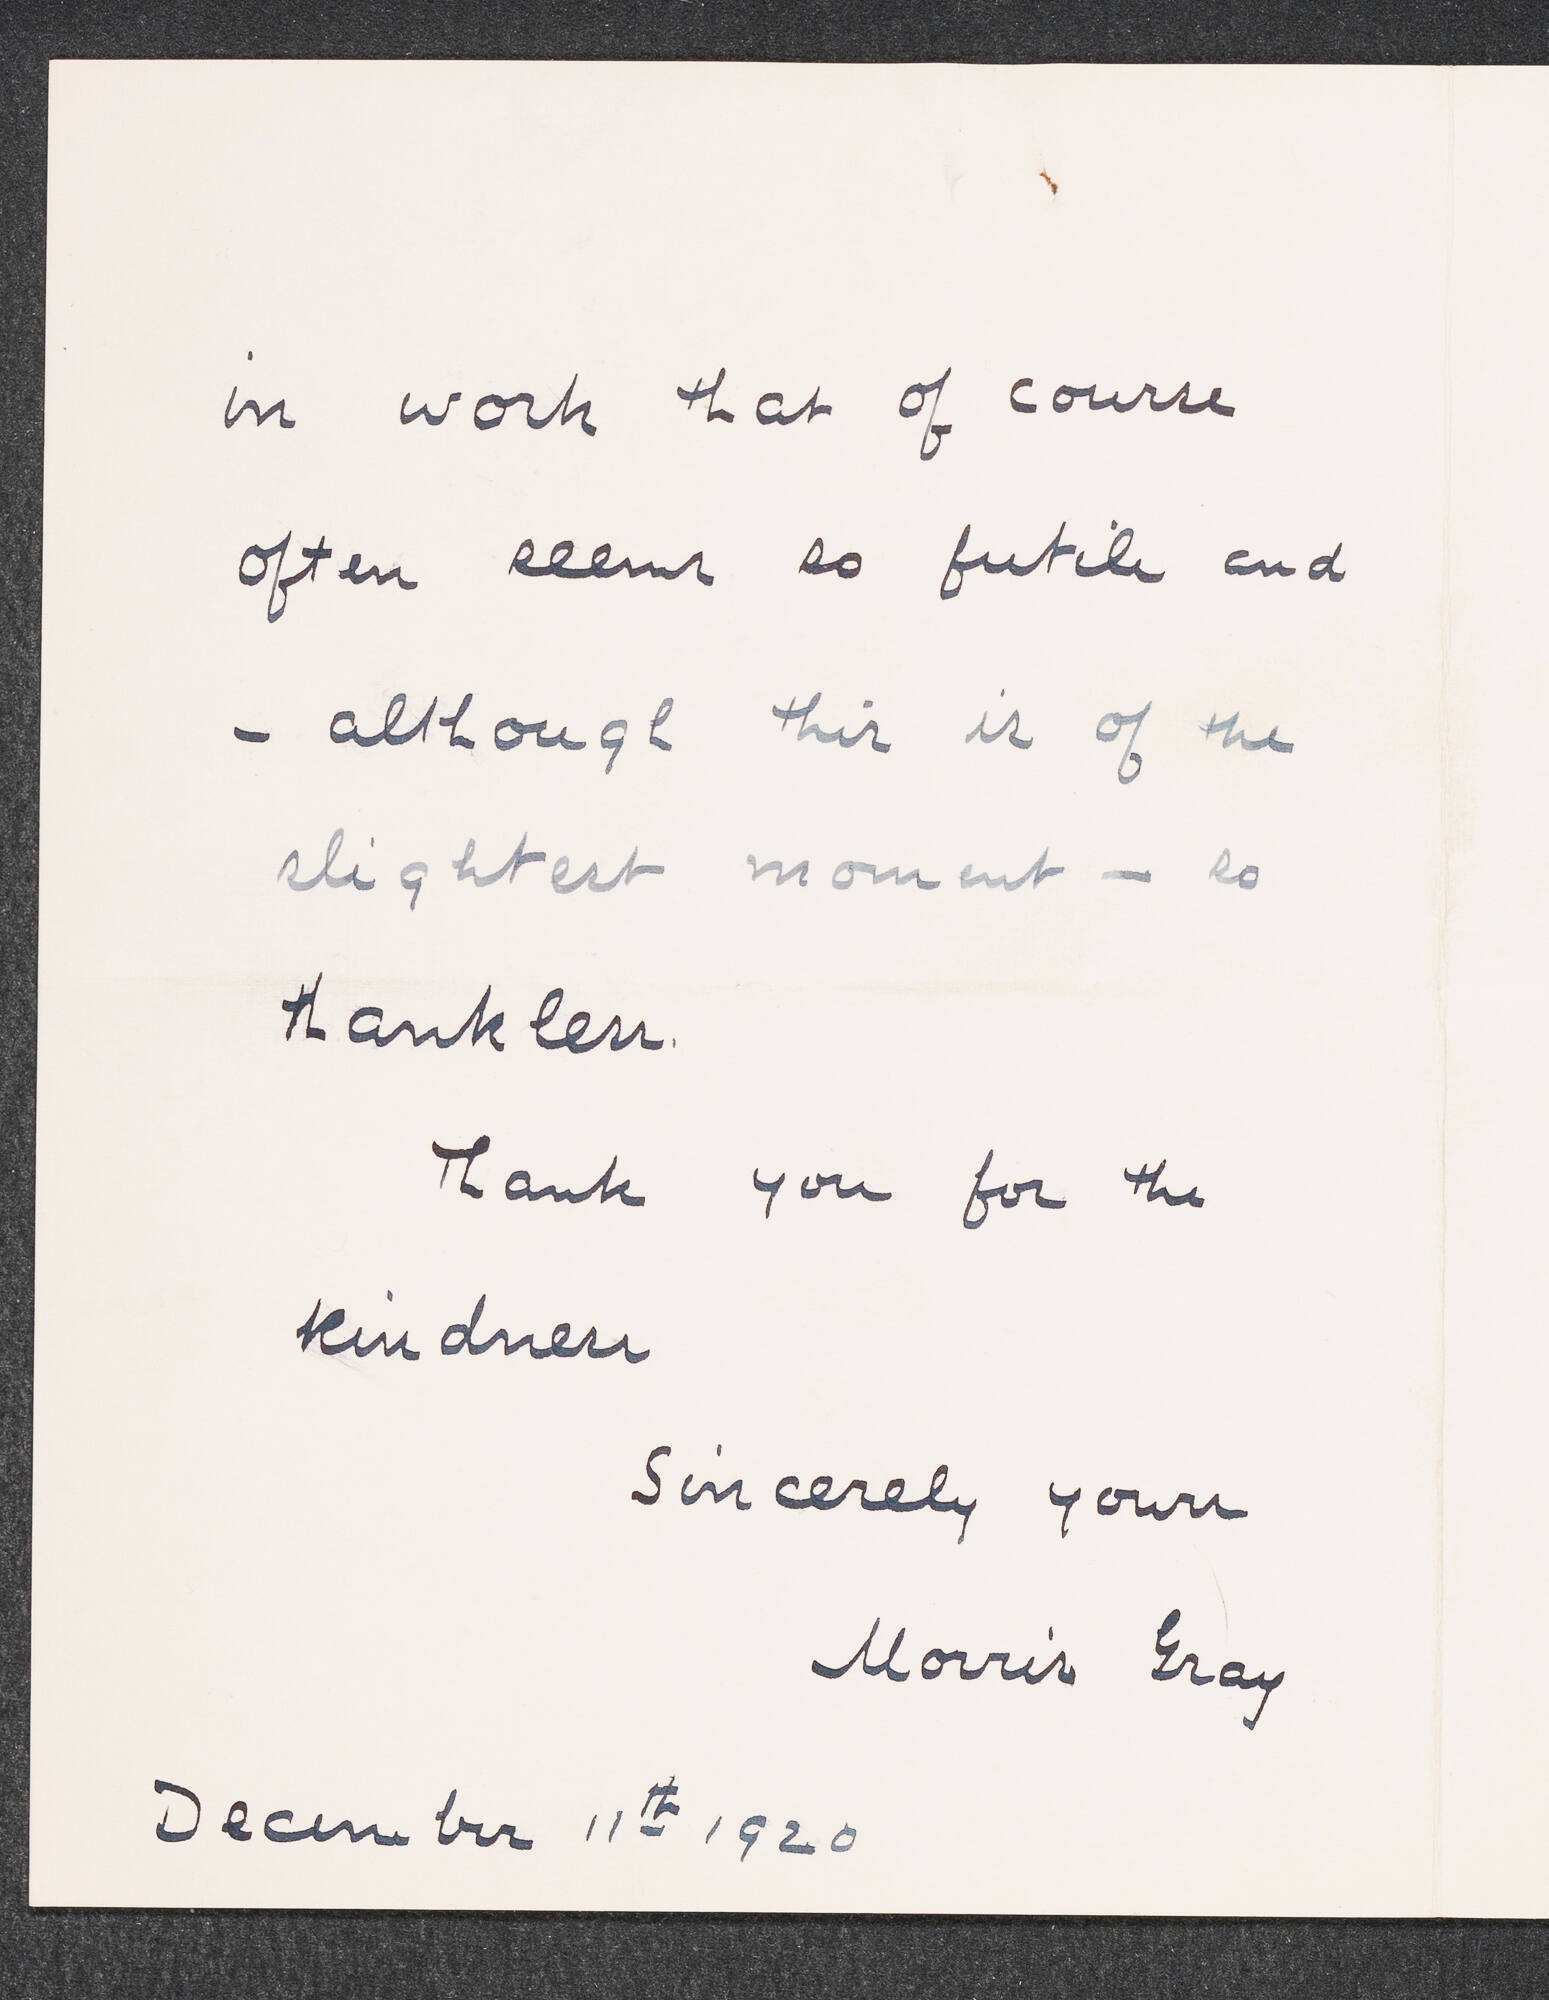 in work that of course
often seems so futile and
- although this is of the
slightest moment - so
thankless.
Thank you for the
kindness
Sincerely yours
Morris Gray
December 11th 1920